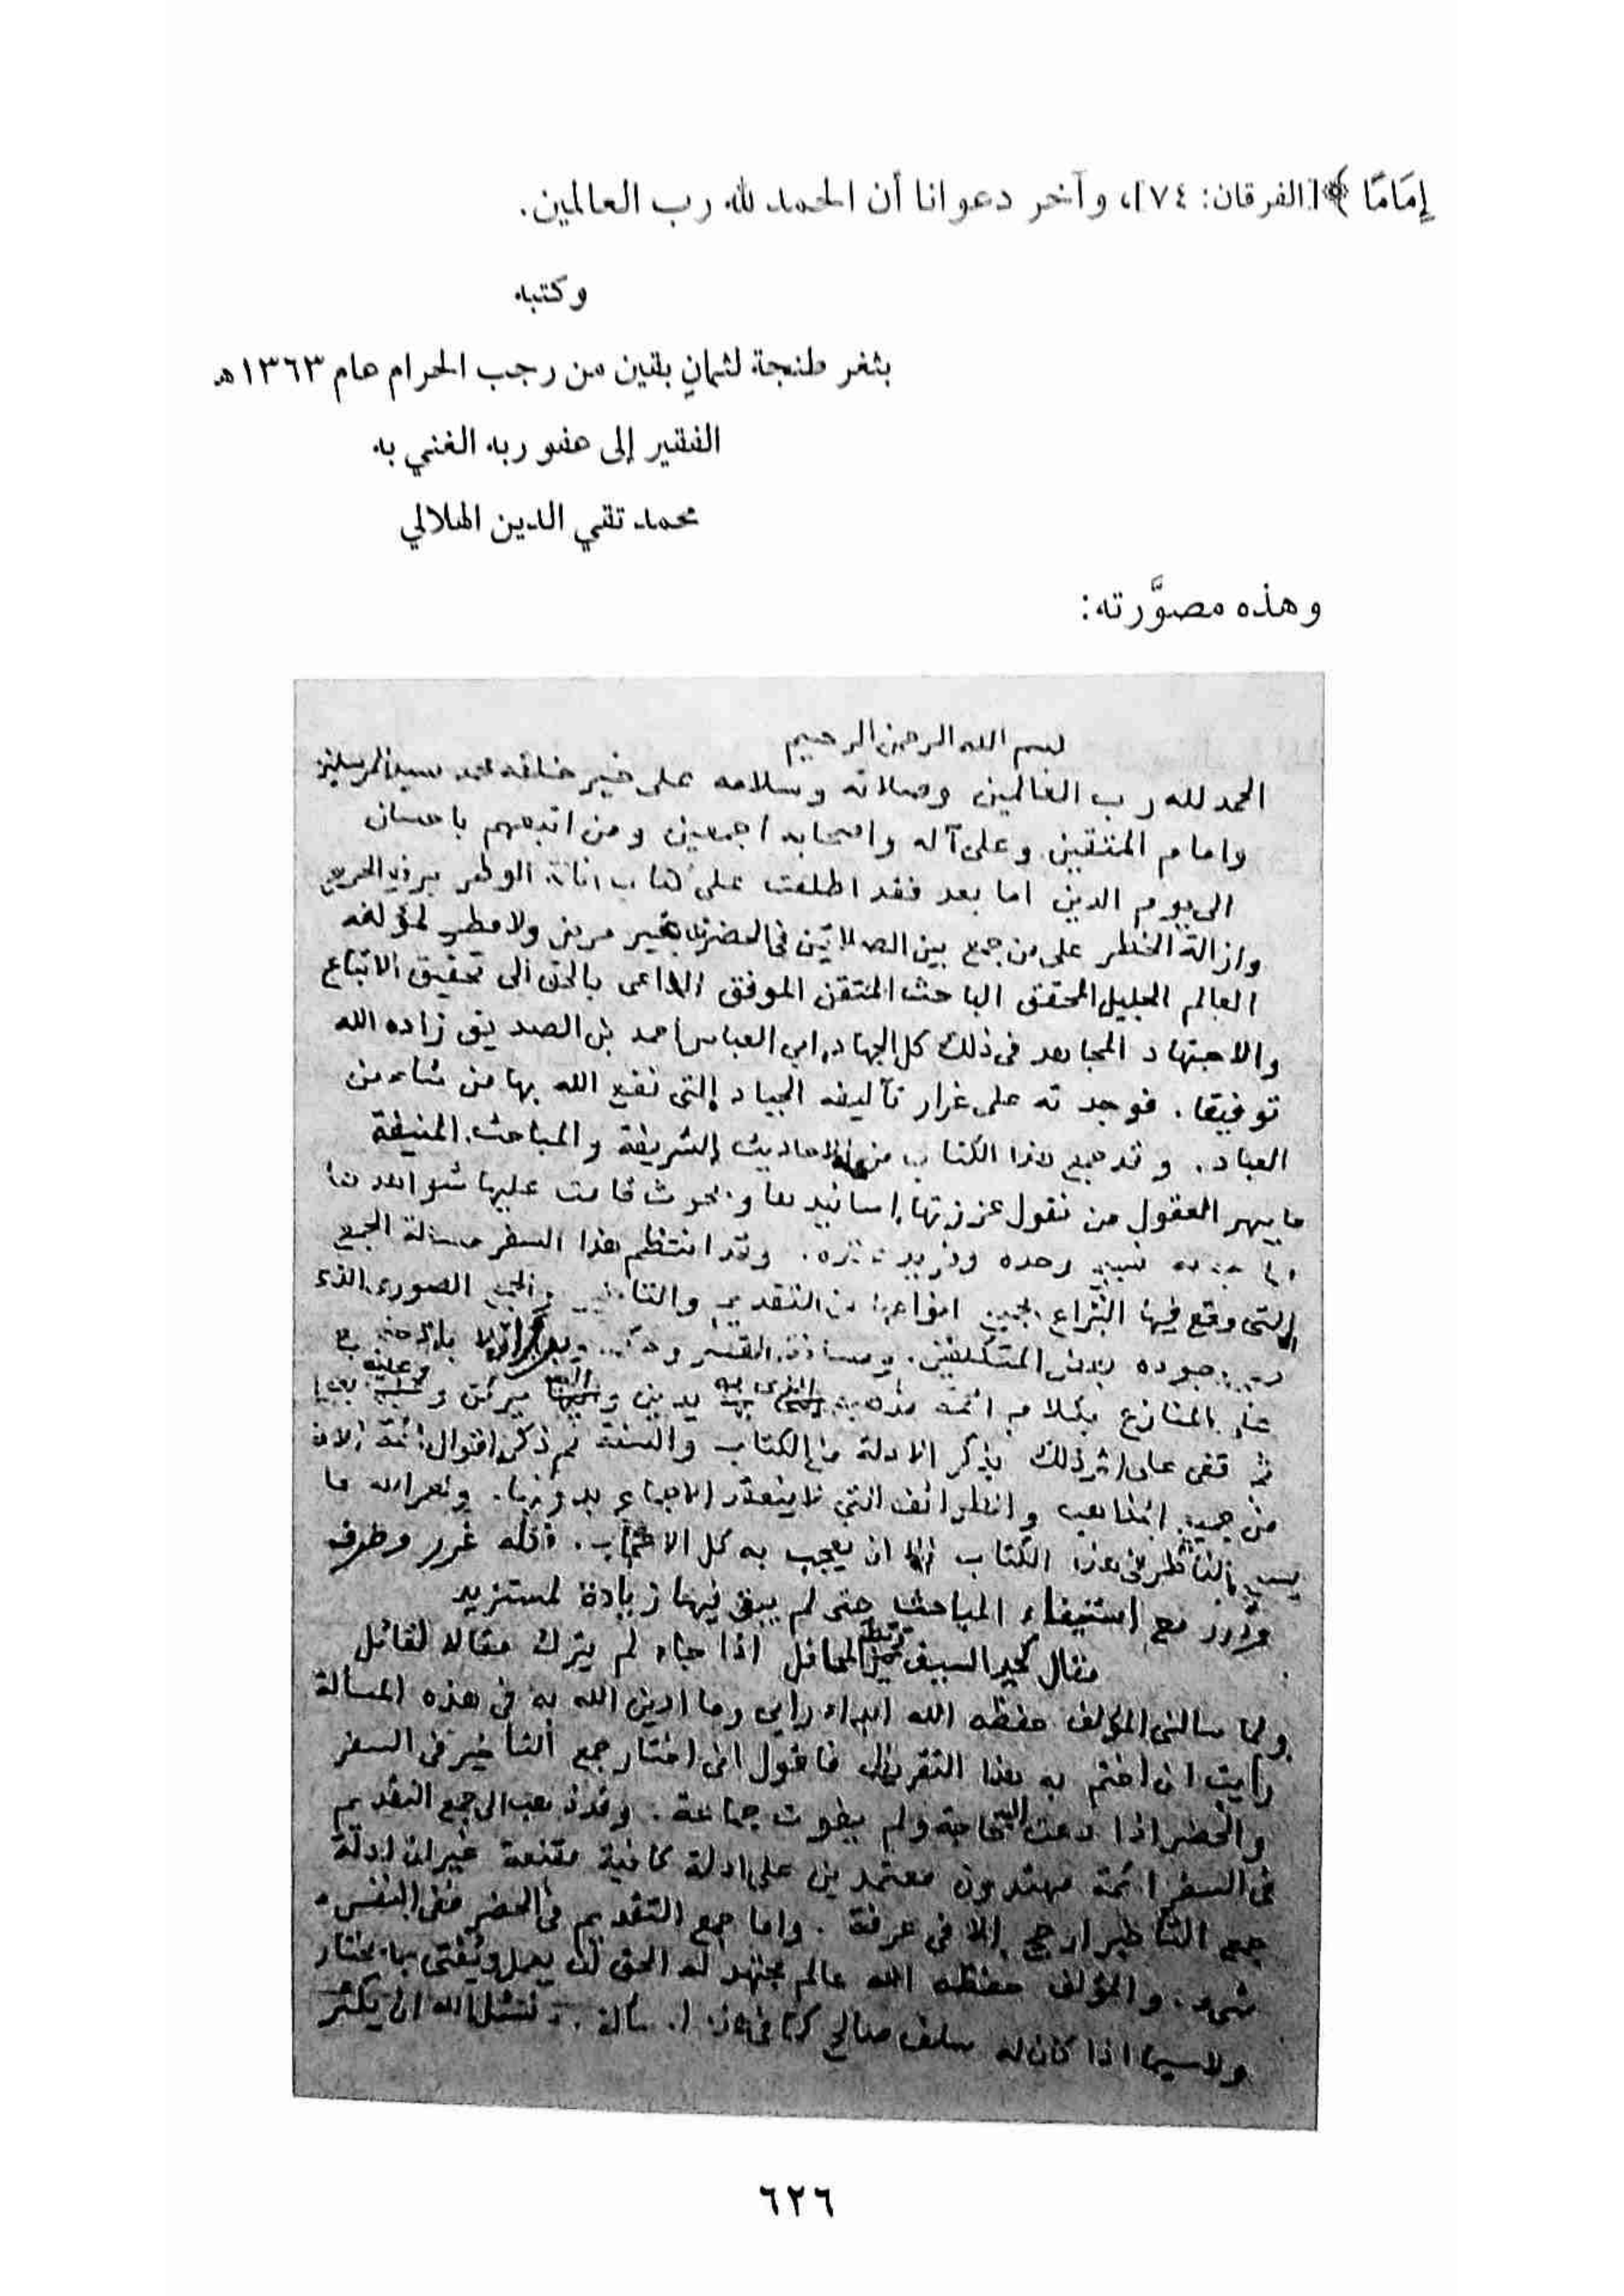 إِمَامًا ﴾ [الفرقان: ٧٤]، وآخر دعوانا أن الحمد لله رب العالمين.
وكتبه
بثغر طنجة لثمانٍ بقين من رجب الحرام عام ١٣٦٣هـ
الفقير إلى عفو ربه الغني به
محمد تقي الدين الهلالي
وهذه مصوَّرته:
بسم الله الرحمن الرحيم
الحمد لله رب العالمين وصلاته وسلامه على خير خلقه محمد سيد المرسلين
وامام المتقين وعلى آله واصحابه اجمعين ومن اتبعهم باحسان
الى يوم الدين اما بعد فقد اطلعت على كتاب الوطر الحرج
وازالة الخطر على من جمع بين الصلاتين فى الحضر بغير مرض ولا مطر لمؤلفه
العالم الجليل المحقق الباحث المتقن الموفق الداعى بالحق الى تحقيق الاتباع
والاجتهاد المجاهد فى ذلك كل الجهاد، ابى العباس احمد بن الصديق زاده الله
توفيقا. فوجدته على غرار تآليفه الجياد التى نفع الله بها من شاء من
العباد. وقد جمع هذا الكتاب من الاحاديث الشريفة والمباحث المنيفة
ما يبهر العقول من نقول عززتها اسانيدها وبحوث قامت عليها شواهدها
وحده وفريد. وقد انتظم هذا السفر مسألة الجمع
التى وقع فيها النزاع بجميع انواعها من التقديم والتاخير والجمع الصورى الذى
بعض المتكلفين.
المنازع بكلام ائمة مذهبه الذى به يدين
ثم قفى على اثر ذلك بذكر الادلة من الكتاب والسنة ثم ذكر اقوال ائمة
من جميع المذاهب والطوائف التى لا ينعقد الاجماع بدونها. ولعمر الله ما
يسع الناظر فى هذا الكتاب الا ان يعجب به كل الاعجاب. فكله غرر وطرف
ودرر مع استيفاء المباحث حتى لم يبق فيها زيادة لمستزيد
مقال كحد السيف المحافل اذا جاء لم يترك مقالا لقائل
ولما سالنى المؤلف حفظه الله ابداء رايى وما ادين الله به فى هذه المسألة
رايت ان اختم به هذا التقريظ فاقول انى اختار جمع التأخير فى السفر
والحضر اذا دعت اليه حاجة ولم يفوت جماعة. وقد ذهب الى جمع التقديم
فى السفر ائمة مهتدون معتمدين على ادلة كافية مقنعة غير ان ادلة
جمع التأخير ارجح الا فى عرفة. واما جمع التقديم فى الحضر ففى النفس منه
شىء. والمؤلف حفظه الله عالم مجتهد له الحق ان يعمل ويفتى بما يختار
ولا سيما اذا كان له سلف صالح كما فى هذه المسألة. ونسئل الله ان يكثر
٦٢٦